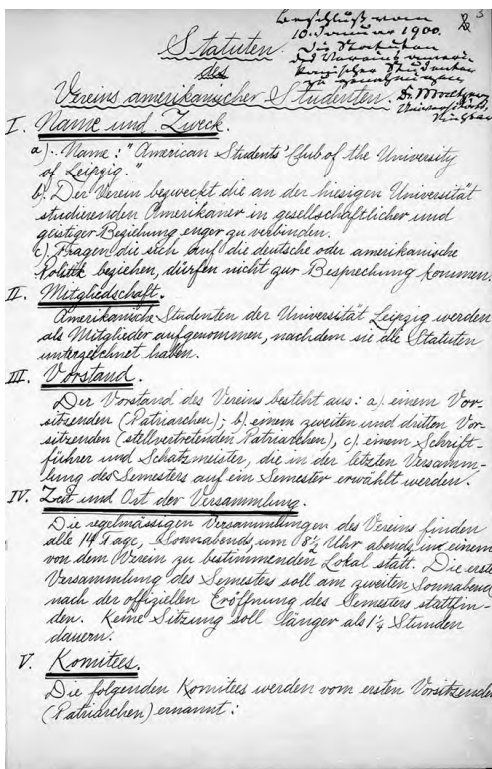 Beschluß vom
10. Januar 1900.
Die Statuten
des Vereins ameri-
kanischer Studenten
zu genehmigen
3
Statuten
des
Vereins amerikanischer Studenten.
I. Name und Zweck.
a). Name: "American Students' Club of the University
of Leipzig."
b). Der Verein bezweckt die an der hiesigen Universität
studierenden Amerikaner in gesellschaftlicher und
geistiger Beziehung enger zu verbinden.
c) Fragen die sich auf die deutsche oder amerikanische
Politik beziehen, dürfen nicht zur Besprechung kommen.
II. Mitgliedschaft.
Amerikanische Studenten der Universität Leipzig werden
als Mitglieder aufgenommen, nachdem sie die Statuten
unterzeichnet haben.
III. Vorstand
Der Vorstand des Vereins besteht aus: a). einem Vor-
sitzenden (Patriarchen); b). einem zweiten und dritten Vor-
sitzenden (stellvertretenden Patriarchen), c). einem Schrift-
führer und Schatzmeister, die in der letzten Versamm-
lung des Semesters auf ein Semester erwählt werden.
IV. Zeit und Ort der Versammlung.
Die regelmässigen Versammlungen des Vereins finden
alle 14 Tage, Sonnabends, um 8½ Uhr abends, in einem
von dem Verein zu bestimmenden Lokal statt. Die erste
Versammlung des Semesters soll am zweiten Sonnabend
nach der offiziellen Eröffnung des Semesters stattfin-
den. Keine Sitzung soll länger als 1¼ Stunden
dauern.
V. Komitees.
Die folgenden Komitees werden vom ersten Vorsitzenden
(Patriarchen) ernannt: